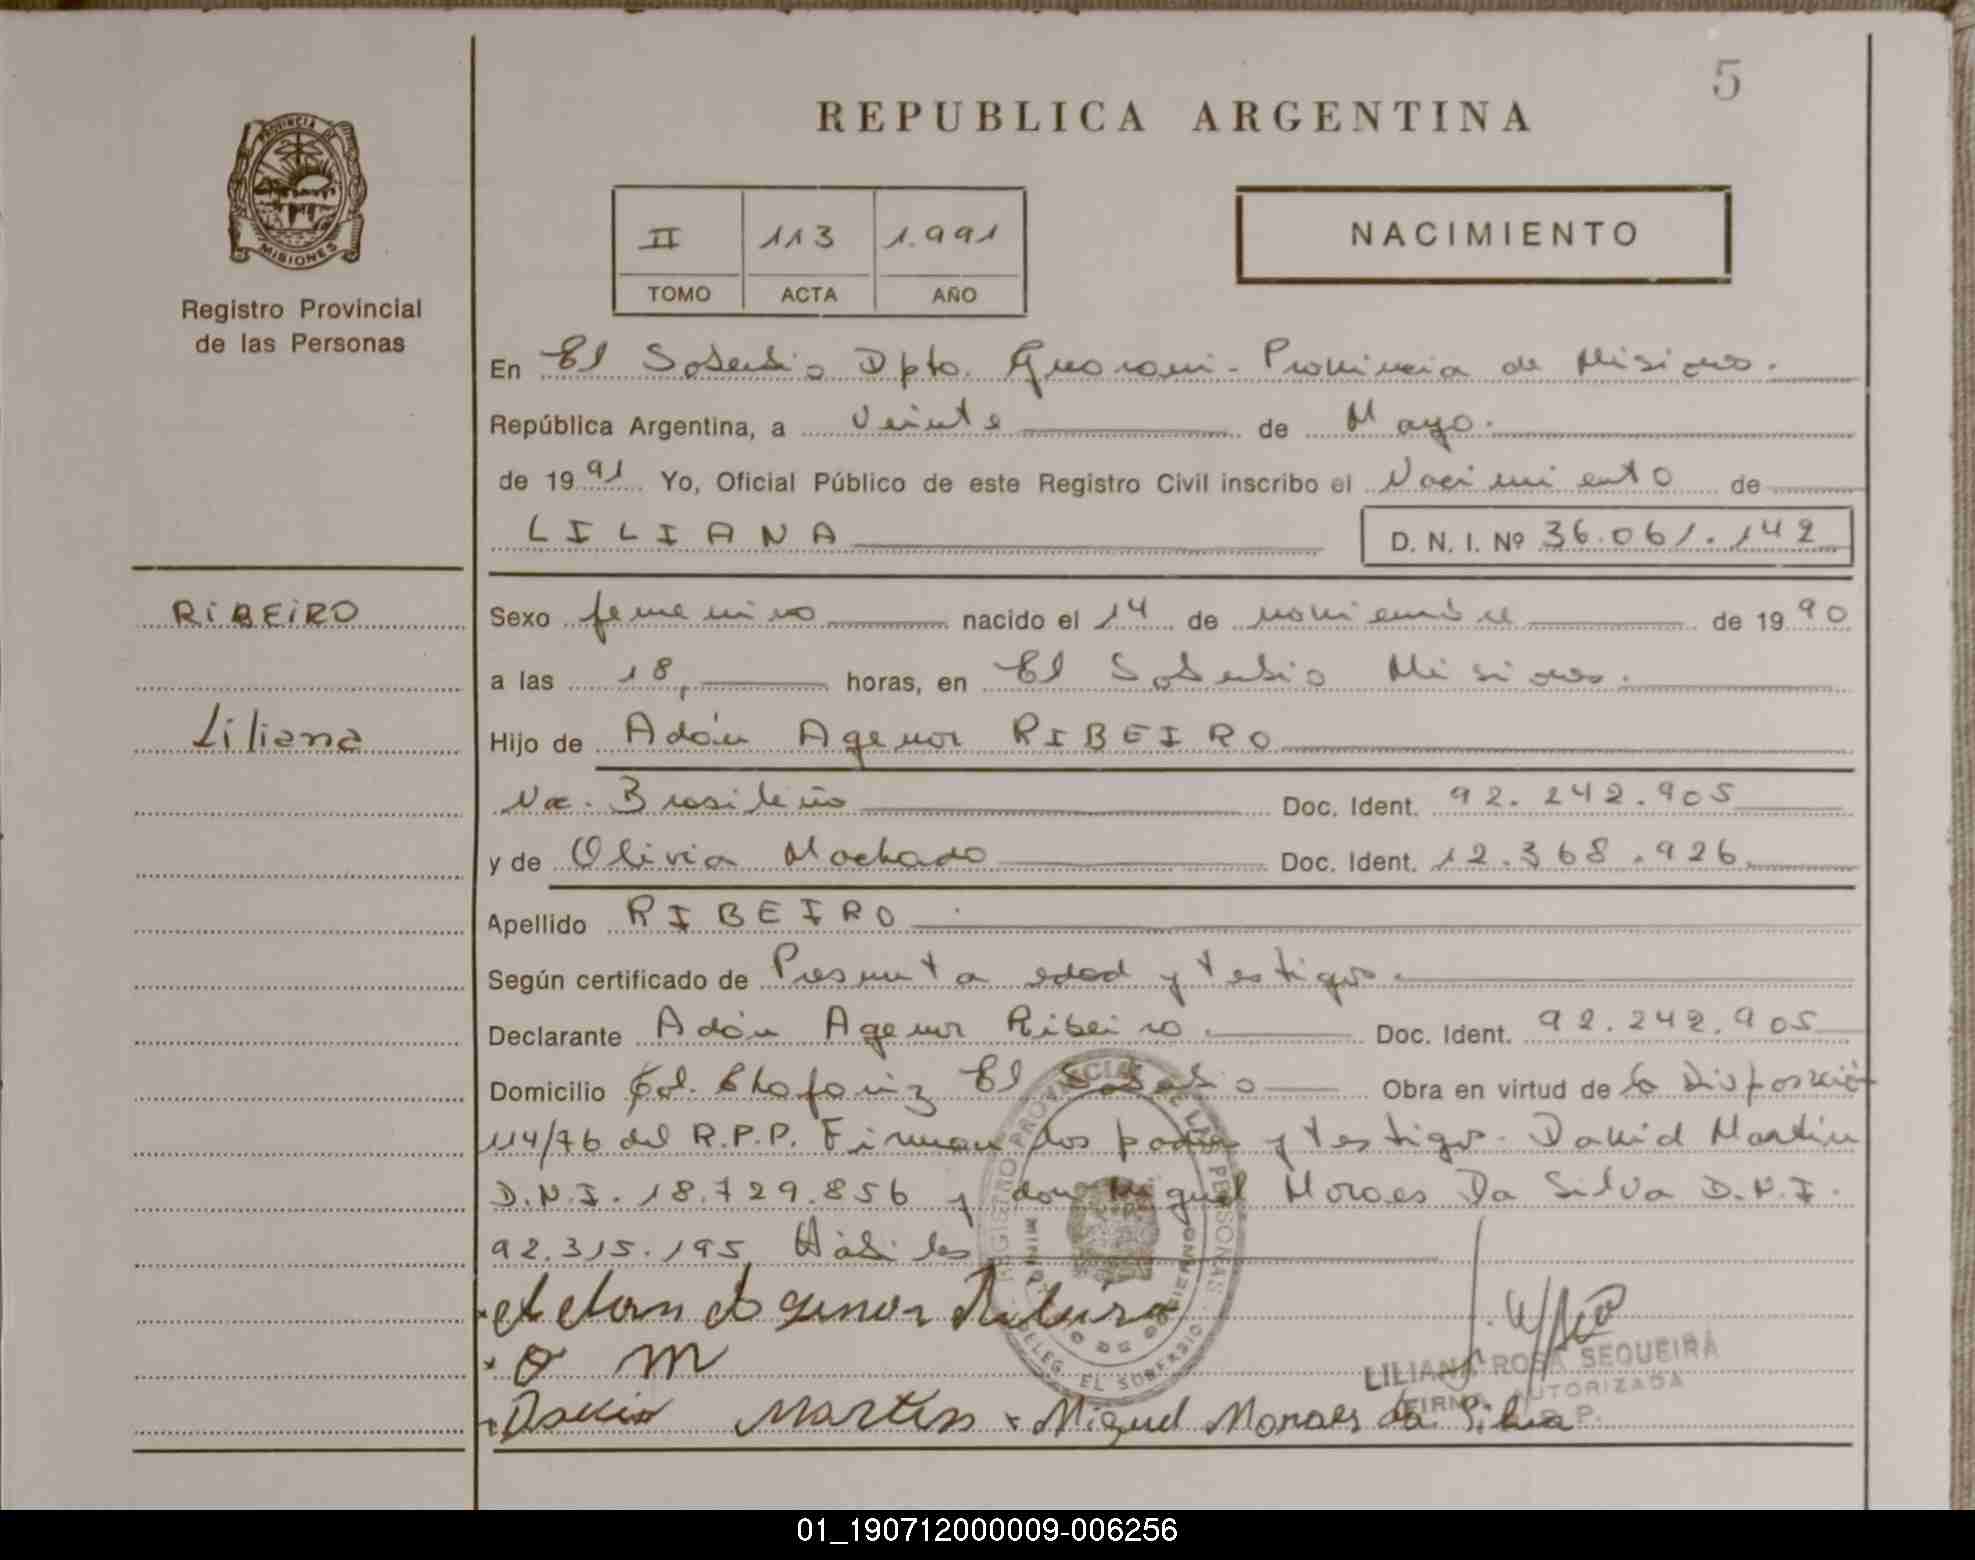 5
REPUBLICA ARGENTINA
PROVINCIA DE MISIONES
Registro Provincial
de las Personas
II 113 1.991
TOMO ACTA AÑO
NACIMIENTO
En El Soberbio Dpto. Guarani - Provincia de Misiones.
República Argentina, a Veinte de Mayo.
de 1991 Yo, Oficial Público de este Registro Civil inscribo el Nacimiento de
LILIANA D. N. I. Nº 36.061.142
RIBEIRO
Liliana
Sexo femenino nacido el 14 de noviembre de 1990
a las 18, horas, en El Soberbio Misiones.
Hijo de Adán Agenor RIBEIRO
Nac. Brasileño Doc. Ident. 92.242.905
y de Olivia Machado Doc. Ident. 12.368.926.
Apellido RIBEIRO
Según certificado de Presunta edad y testigos.
Declarante Adán Agenor Ribeiro. Doc. Ident. 92.242.905
Domicilio Col. El Soberbio Obra en virtud de la Disposición
114/76 del R.P.P. Firman los padres y testigos. David Martin
D.N.I. 18.729.856 y don Miguel Moraes Da Silva D.N.I.
92.315.195 Hábiles
REGISTRO PROVINCIAL DE LAS PERSONAS
MINISTERIO DE GOBIERNO
DELEG. EL SOBERBIO
O M
LILIANA ROSA SEQUEIRA
FIRMA AUTORIZADA
Martin x Miguel Moraes da Silva
01_190712000009-006256